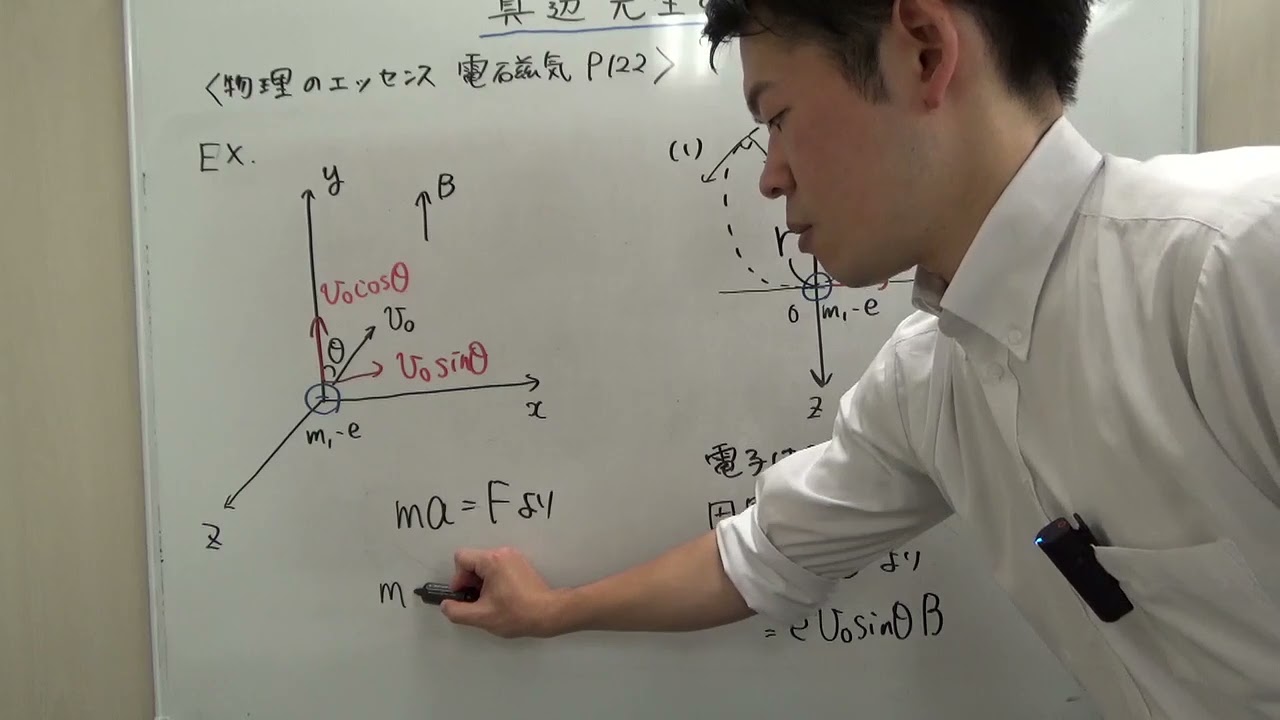 〈物理のエッセンス 電磁気 P122〉
EX.
y
B
v₀cosθ
v₀
θ
v₀sinθ
x
m,-e
z
ma=Fより
m
(1)
r
0
m,-e
z
電子は
より
= e v₀sinθB